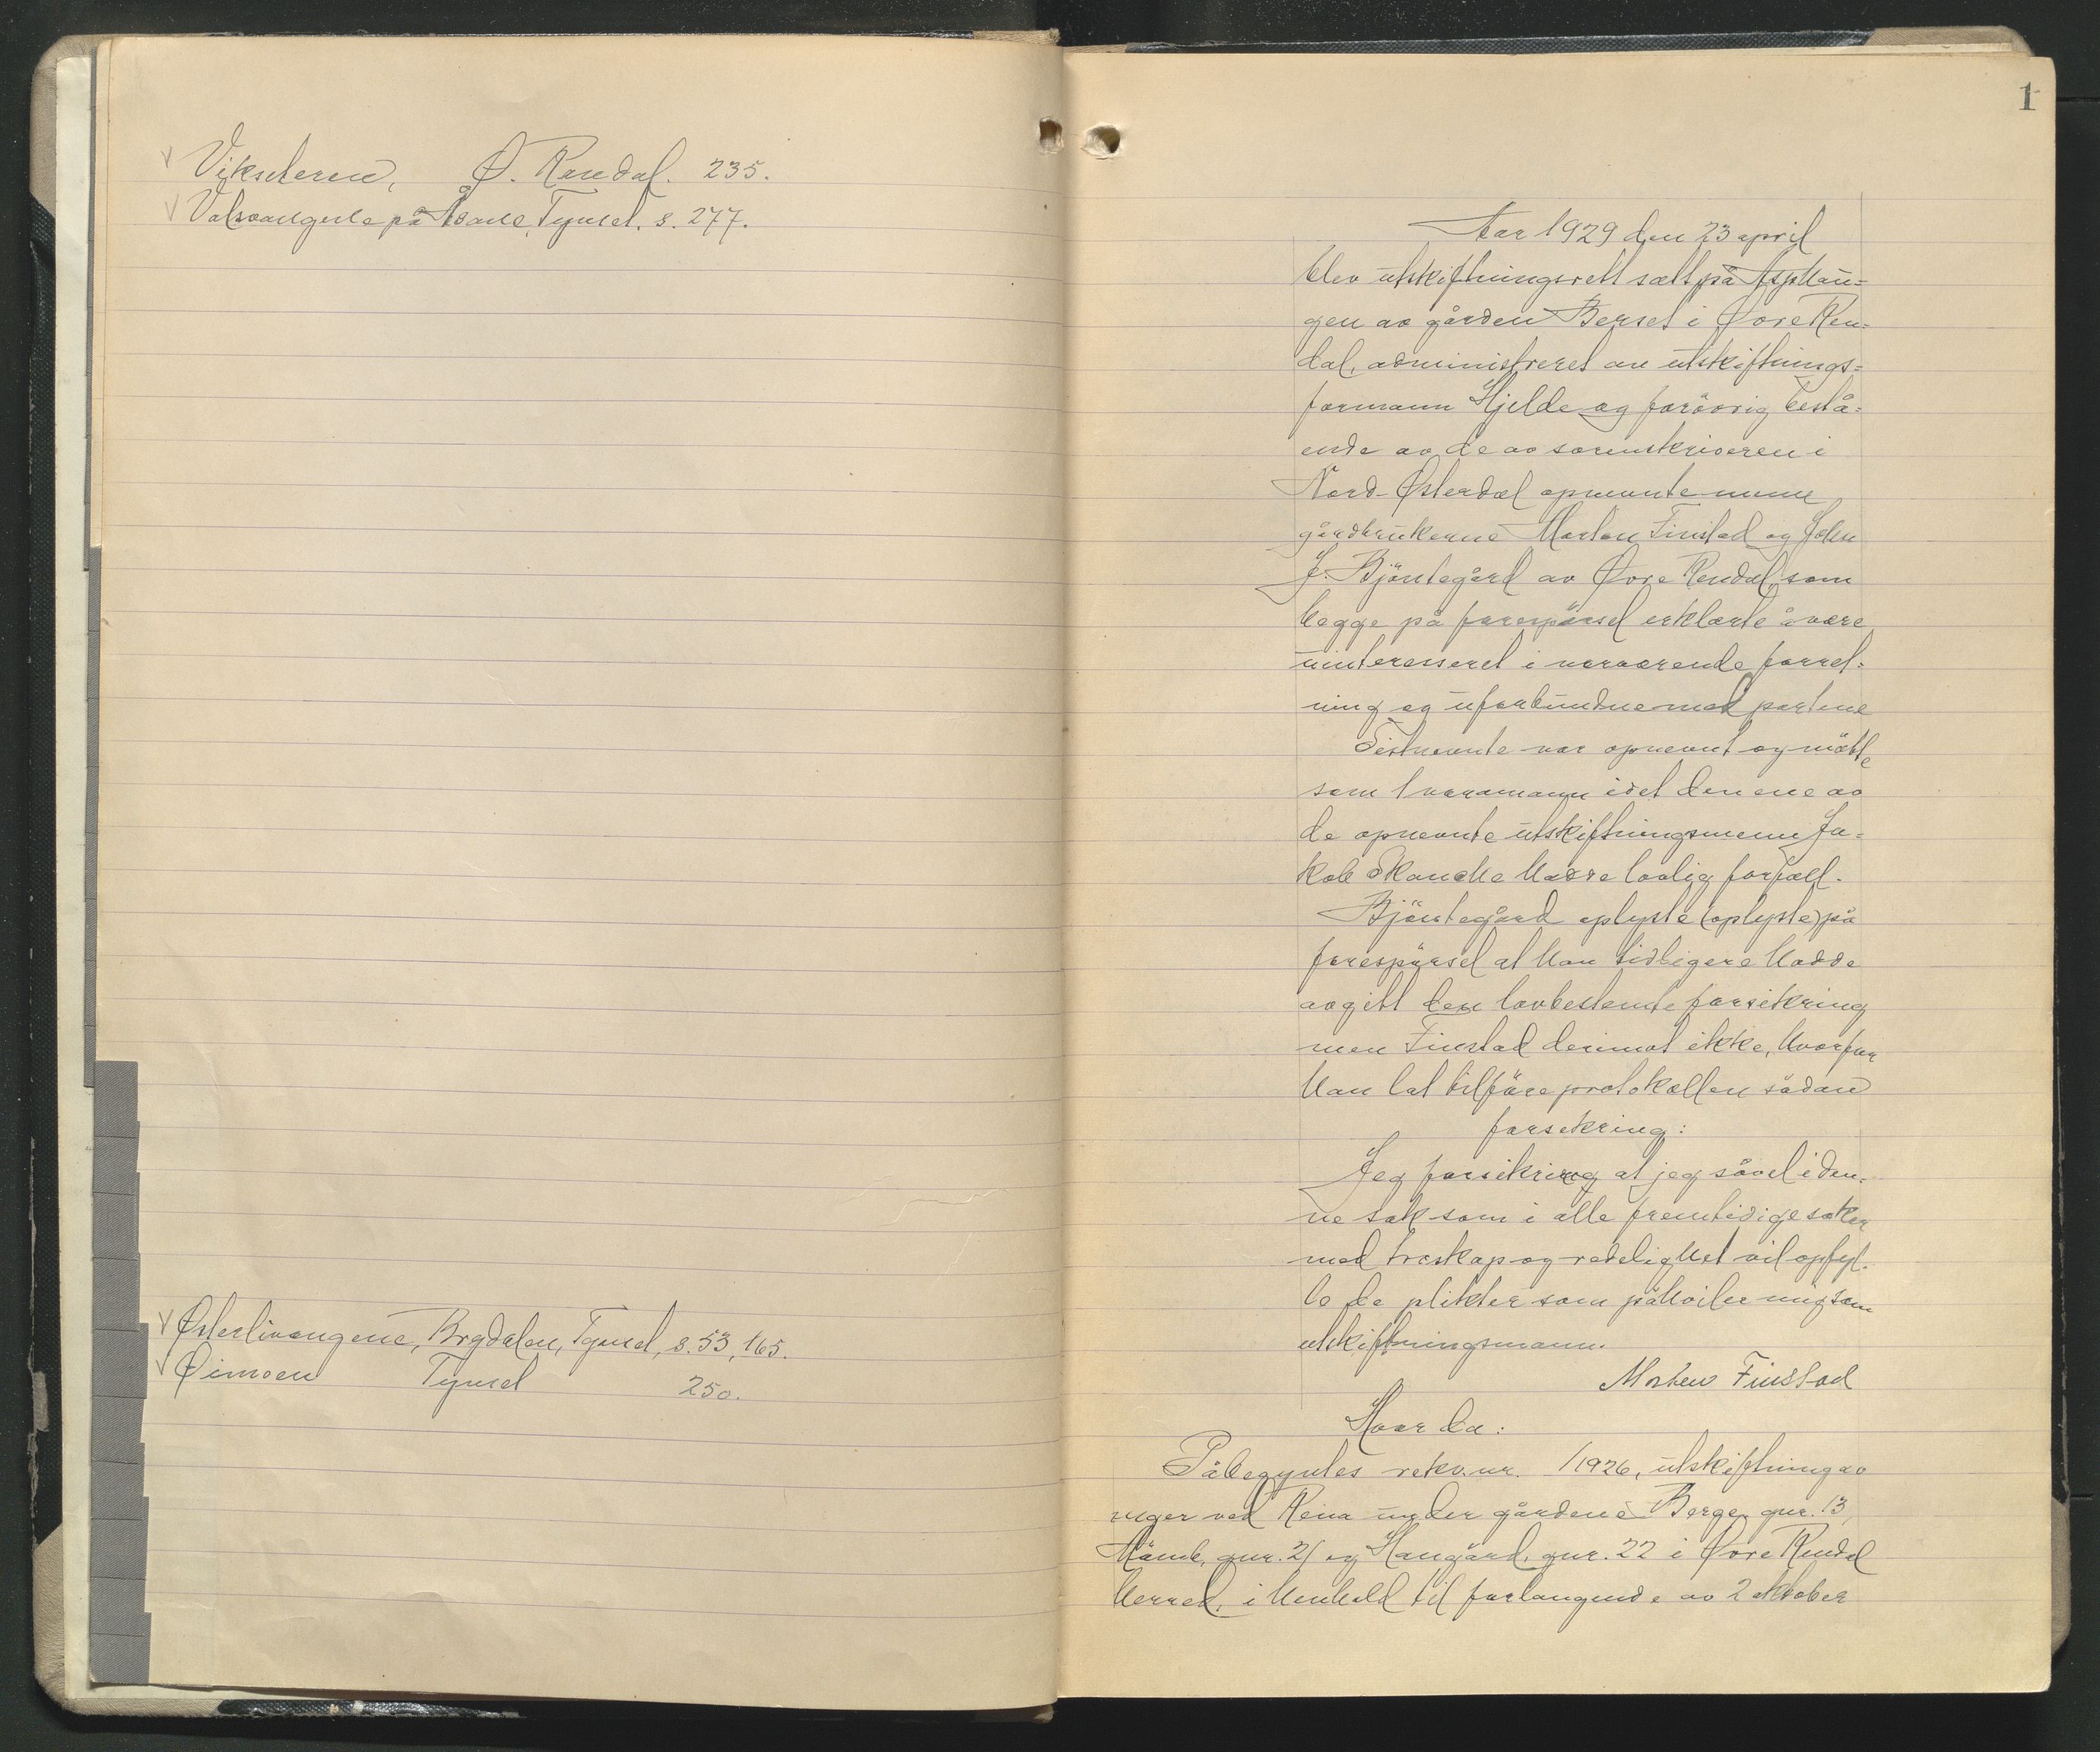 Vikseteren, Ø. Rendal. 235.
Valsvangene på Åsane, Tynset. s. 277.
Østerlivangene, Brydalen, Tynset, s. 53, 165.
Øimoen Tynset 250.
1
Aar 1929 den 23 april
blev utskiftningsrett satt på Asphau=
gen av gården Berset i Øvre Ren=
dal, administreret av utskiftnings=
formann Hjelde og forövrig bestå=
ende av de av sorenskriveren i
Nord-Østerdal opnevnte menn
gårdbrukerne Morten Finstad og John
J. Bjöntegård av Øvre Rendal, som
begge på forespörsel erklærte å være
uinteresseret i nærværende forret=
ning og uforbundne med partene
Sistnevnte var opnevnt og mötte
som 1 varamann idet den ene av
de opnevnte utskiftningsmenn Ja=
kob Skancke hadde lovlig forfall.
Bjöntegård oplyste (oplyste) på
forespörsel at han tidligere hadde
avgitt den lovbestemte forsikring
men Finstad derimot ikke, hvorfor
han lot tilföre protokollen sådan
forsikring:
Jeg forsikring at jeg såvel i den=
ne sak som i alle fremtidige saker
med troskap og redelighet vil opfyl=
le de plikter som påhviler mig som
utskiftningsmann.
Morten Finstad
Hvor da:
Påbegyntes rekv. nr. /1926, utskiftning av
enger ved Rena under gårdene Berger gnr. 13,
Haug, gnr. 21 og Haugård, gnr. 22 i Øvre Rendal
herred, i henhold til forlangende av 2 oktober